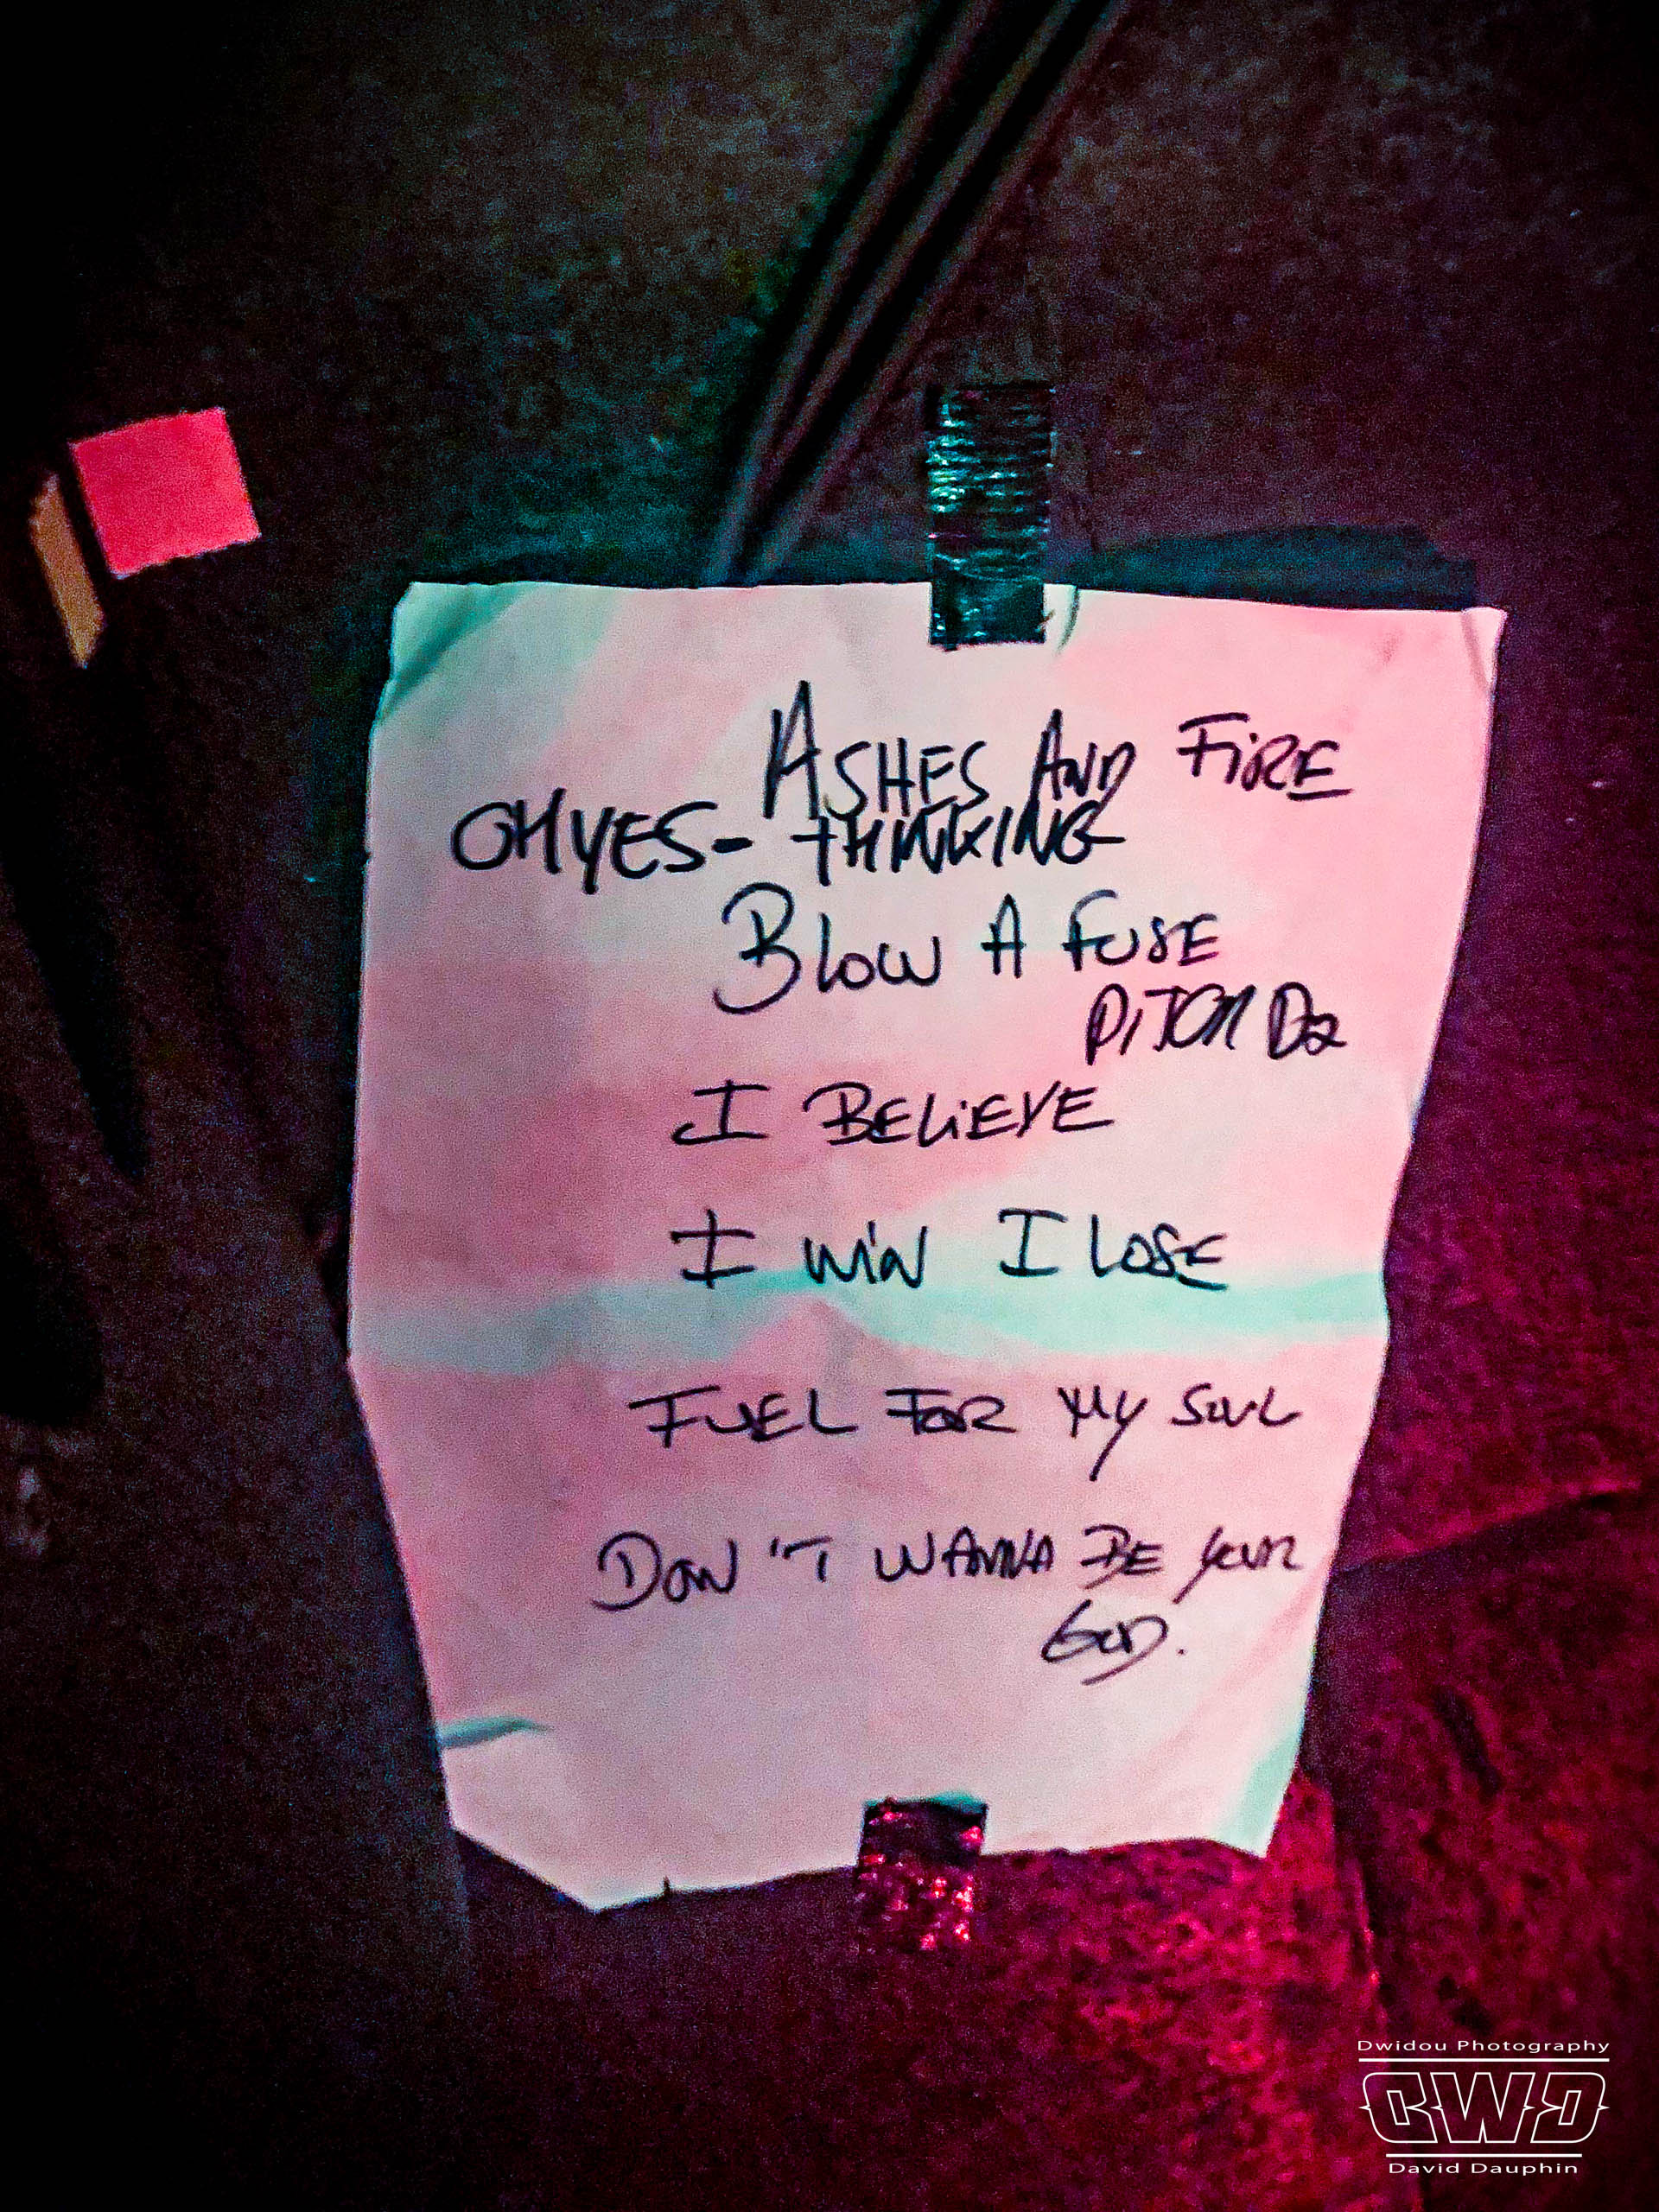 ASHES AND FiRE
OHYES- THINKING
BLOW A FUSE
PITCH D2
I BELiEVE
I WiN I LOSE
FUEL FOR MY SOUL
DON'T WANNA BE YOUR
GOD.
Dwidou Photography
DWD
David Dauphin